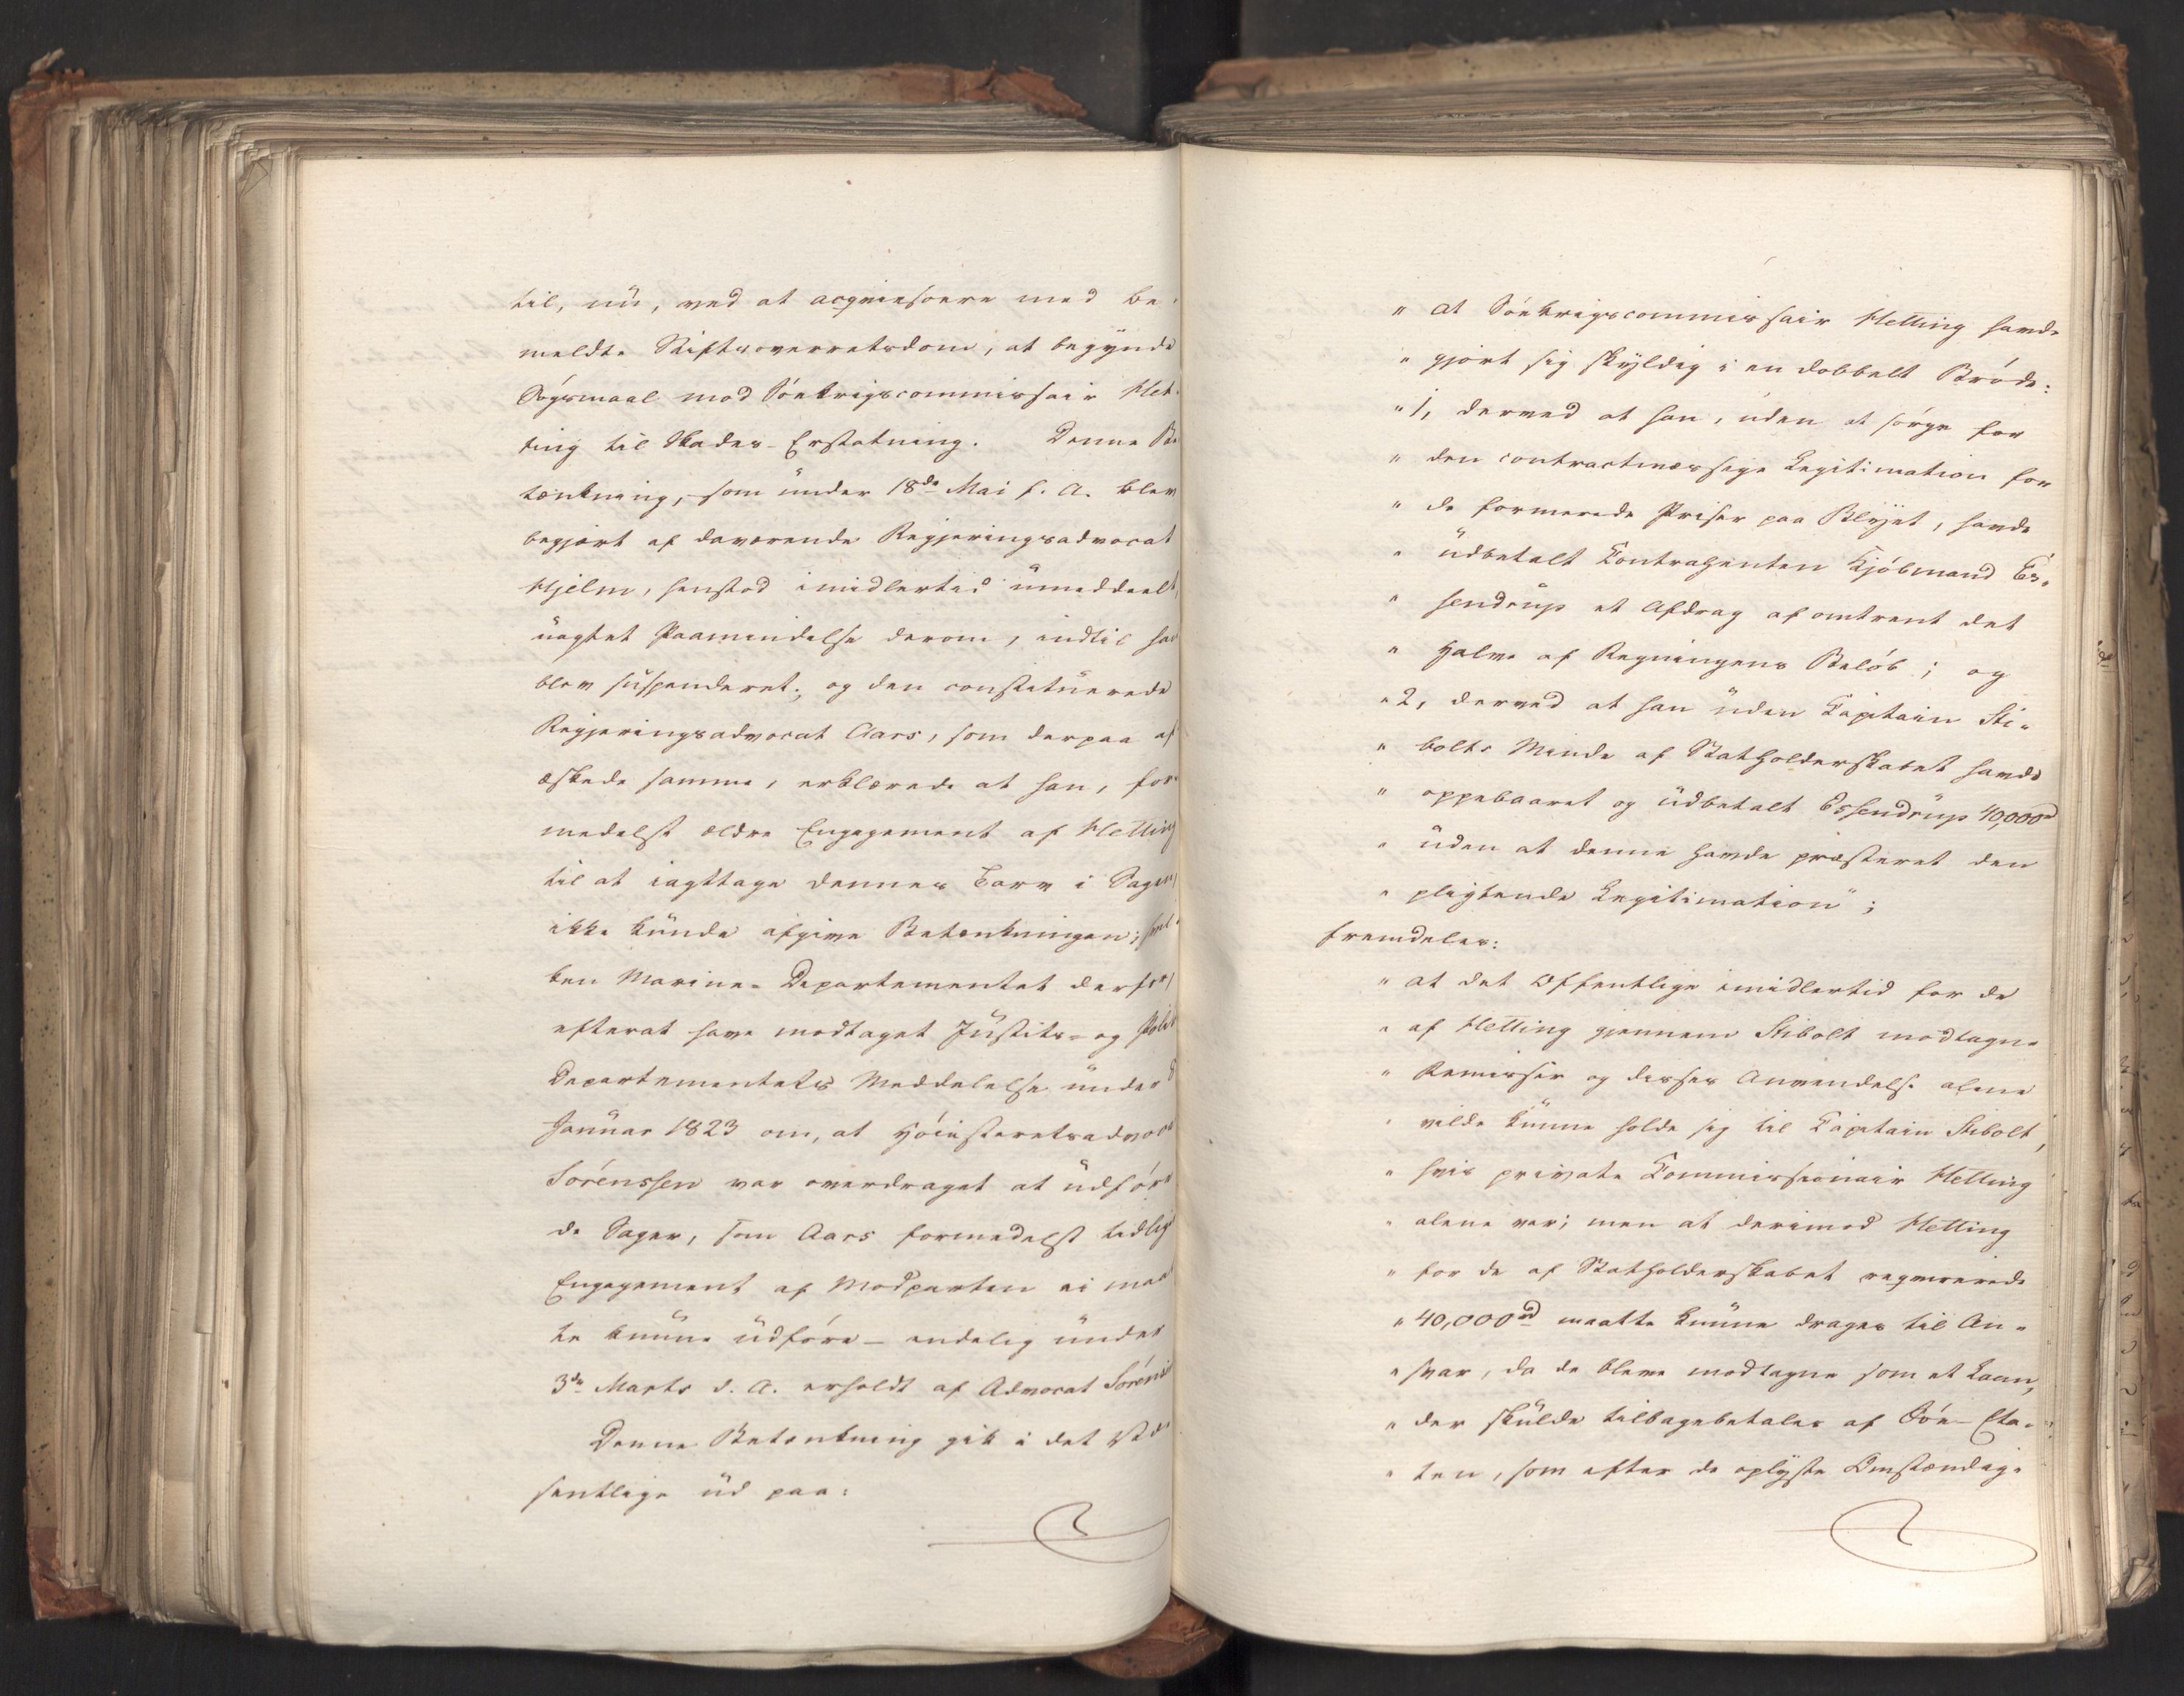 til, nu, ved at acqviescere med be-
meldte Stiftsoverretsdom, at begynde
Søgsmaal mod Søekrigscommissair Het-
ting til Skades-Erstatning. Denne Be
tænkning, som under 18de Mai f. A. blev
begjært af daværende Regjeringsadvocat
Hjelm, henstod imidlertid umeddeelt,
uagtet Paamindelse derom, indtil han
blev suspenderet; og den constituerede
Regjeringsadvocat Aars, som derpaa af
æskede samme, erklærede at han, for-
medelst ældre Engagement af Hetting
til at iagttage dennes Tarv i Sagen,
ikke kunde afgive Betænkningen; hvil-
ken Marine-Departementet derfor,
efterat have modtaget Justits- og Politi
Departementets Meddelelse under 8
Januar 1823 om, at Høiesteretsadvoc
Sørenssen var overdraget at udføre
de Sager, som Aars formedelst tidlig
Engagement af Modparten ei maat
te kunne udføre - endelig under
3de Marts d. A. erholdt af Advocat Sørens
Denne Betænkning gik i det Væ
sentlige ud paa:
" at Søekrigscommissair Hetting havde
" gjort sig skyldig i en dobbelt Brøde:
" 1, derved at han, uden at sørge for
" den contractmæssige Legitimation for
" de formerede Priser paa Blyet, havde
" udbetalt Contrahenten Kjøbmand Es-
" sendrup et Afdrag af omtrent det
" Halve af Regningens Beløb; og
" 2, derved at han uden Capitain Sti-
" bolts Minde af Statholderskabet havde
" oppebaaret og udbetalt Essendrup 40,000rd
" uden at denne havde præsteret den
" pligtende Legitimation";
fremdeles:
" at det Offentlige imidlertid for de
" af Hetting gjennem Stibolt modtagne
" Remisser og disses Anvendelse alene
" vilde kunne holde sig til Capitain Stibolt,
" hvis private Commissionair Hetting
" alene var; men at derimod Hetting
" for de af Statholderskabet reqvirerede
" 40,000rd maatte kunne drages til An-
" svar, da de bleve modtagne som et Laan,
" der skulde tilbagebetales af Søe-Eta-
" ten, som efter de oplyste Omstændig-